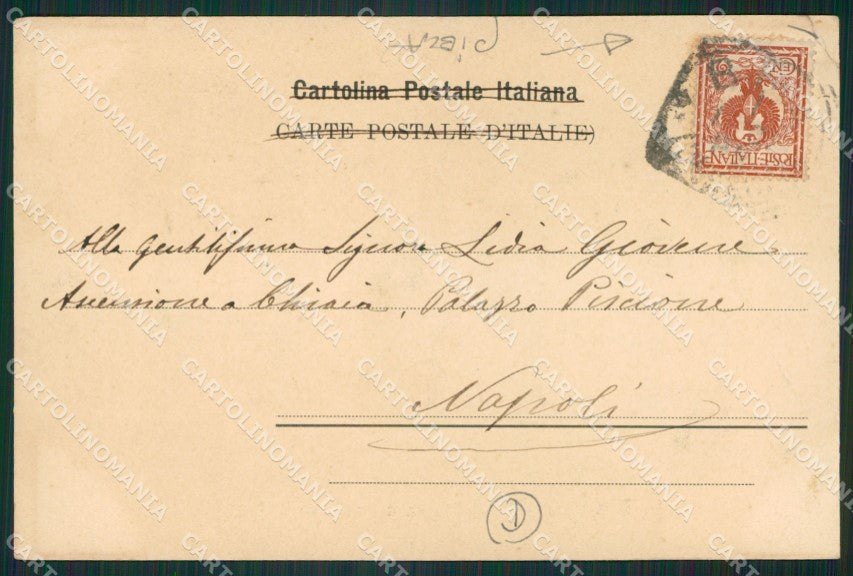 Cartolina Postale Italiana
CARTE POSTALE D'ITALIE)
POSTE-ITALIANE
Alla Gentilissima Signora Lidia Giovene
Ascensione a Chiaia, Palazzo Piscione
Napoli
D
CARTOLINOMANIA